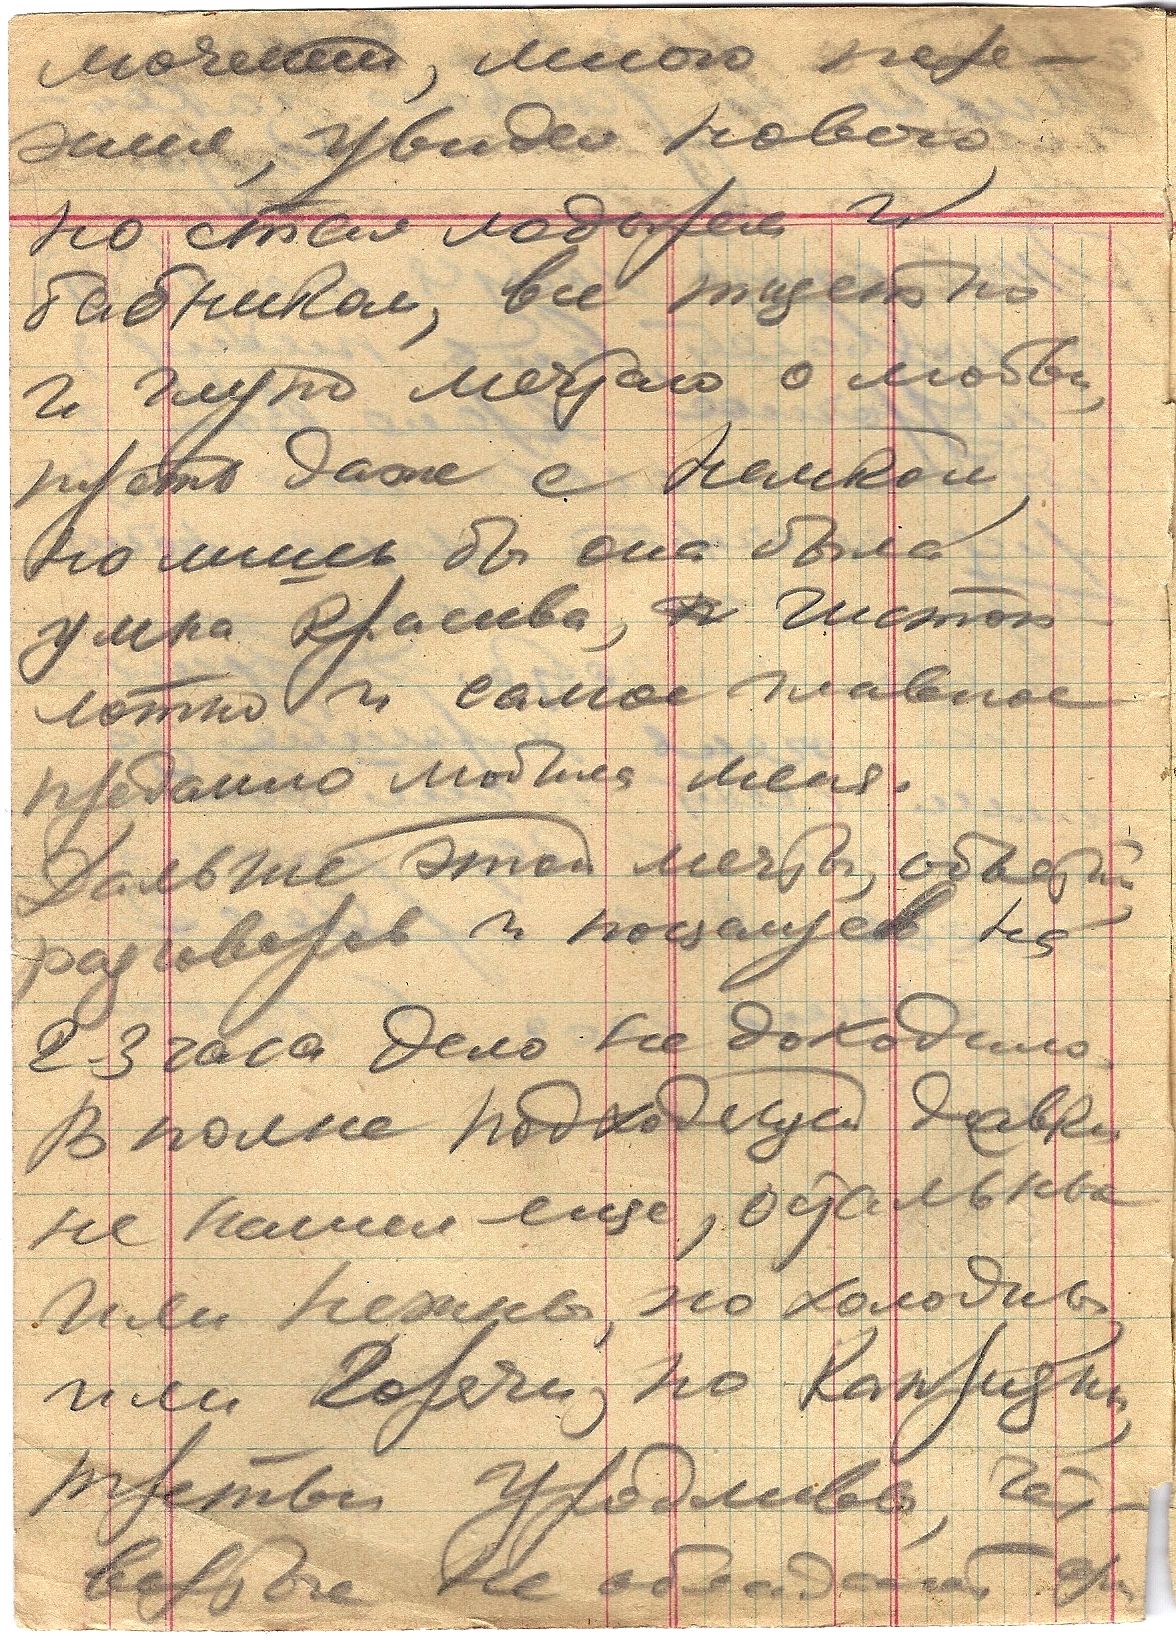 много пере-
жил, увидел нового
но стал лодырем и
бабником, все тщетно
и глупо мечтаю о любви,
пусть даже с немкой,
но лишь бы она была
умна красива, чистоп-
лотно и самое главное
преданно любила меня.
Дальше этой мечты, объятий
разговоров и поцелуев на
2-3 часа дело не доходило.
Вполне подходящей девки
не нашел еще, остальные
или нежны, но холодны,
или горячи, но капризны,
третьи уродливы, чет-
вертые не обладают